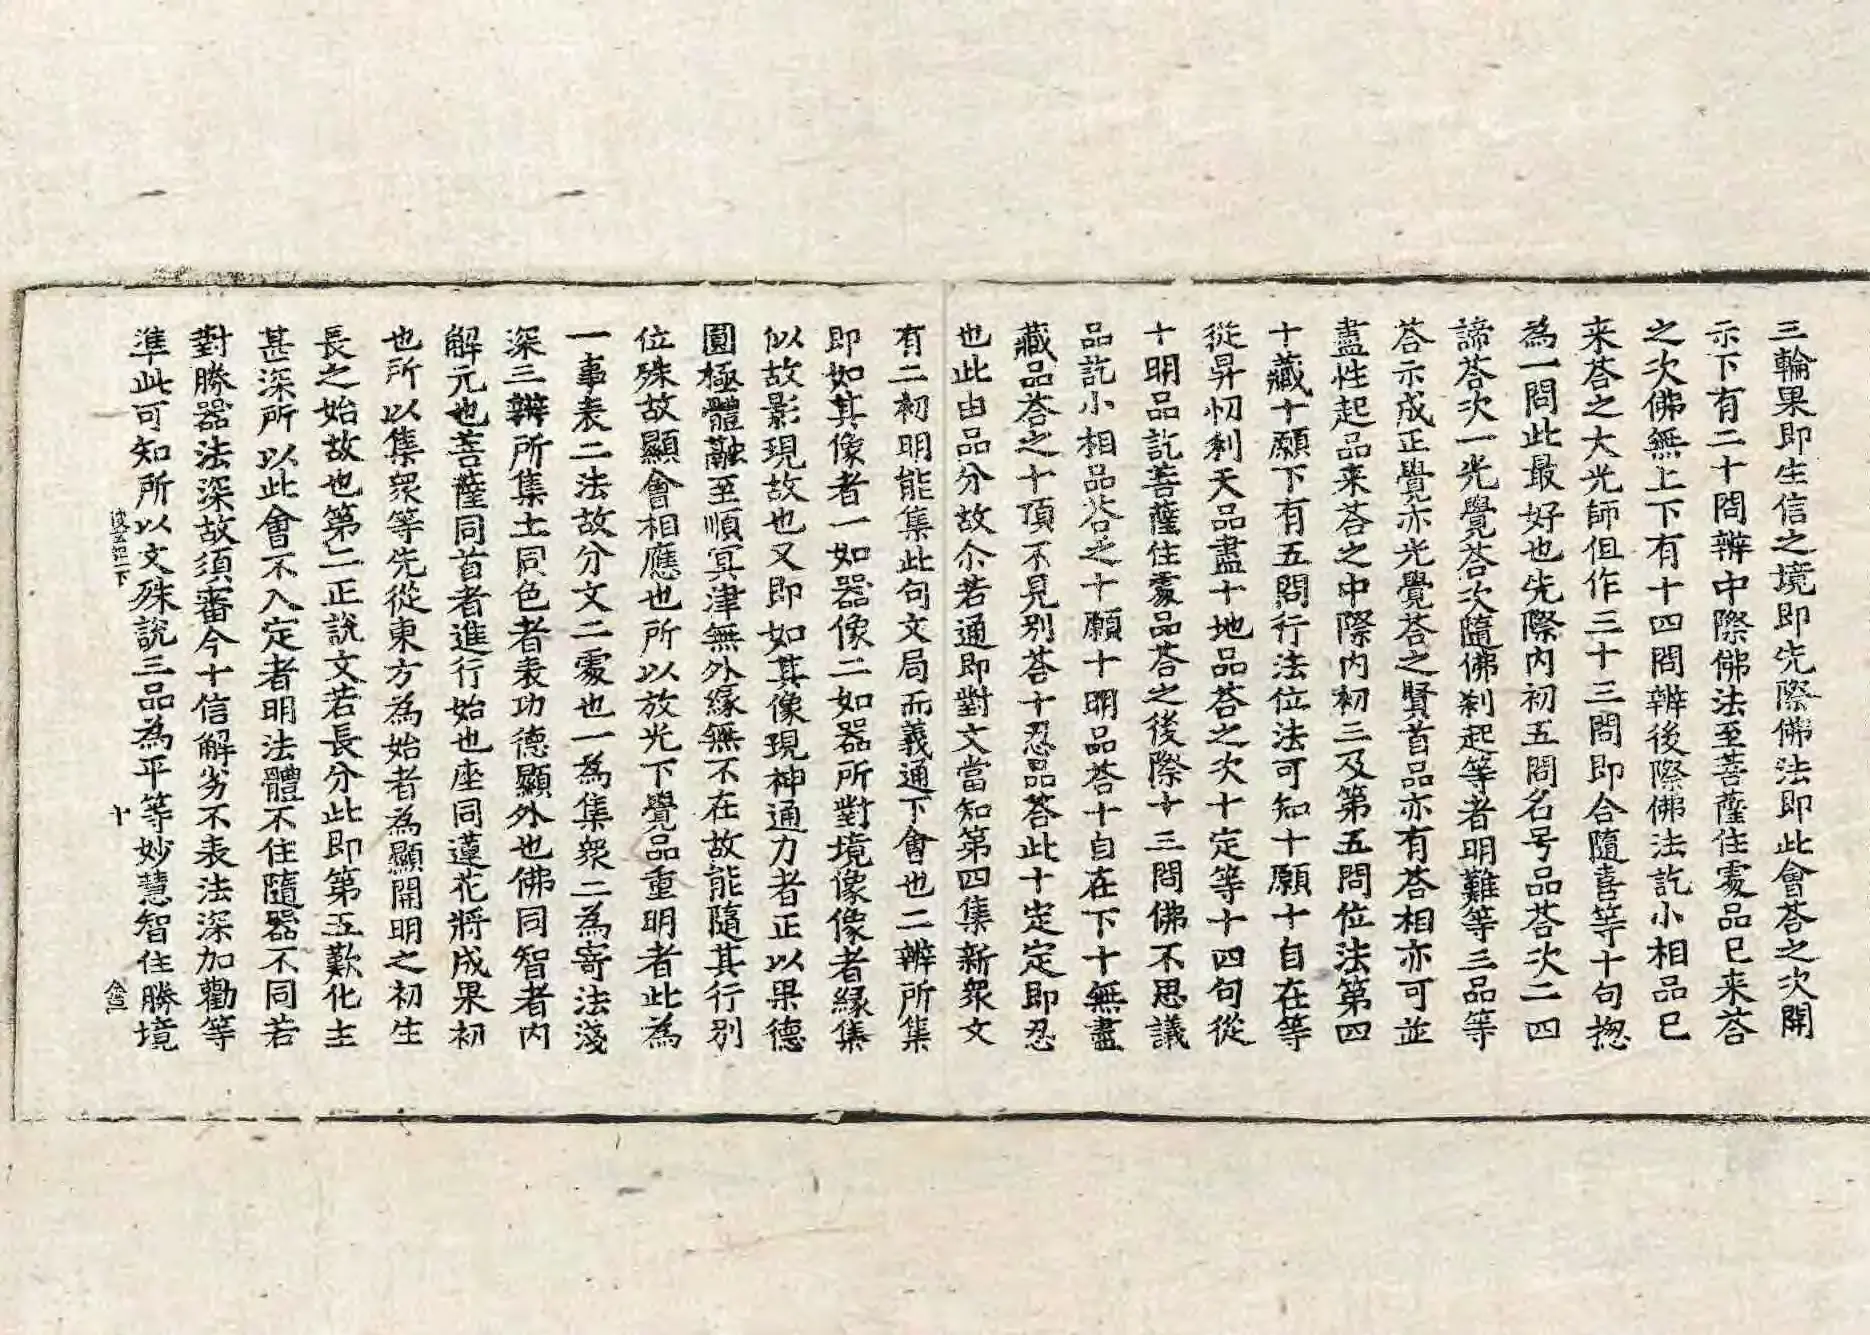 三輪果即生信之境即先際佛法即此會荅之次開
示下有二十問辨中際佛法至菩薩住處品已来荅
之次佛無上下有十四問辨後際佛法訖小相品已
来荅之大光師但作三十三問即合隨喜等十句揔
為一問此最好也先際内初五問名号品荅次二四
諦荅次一光覺荅次隨佛刹起等者明難等三品等
荅示成正覺亦光覺荅之賢首品亦有荅相亦可並
盡性起品来荅之中際内初三及第五問位法第四
十藏十願下有五問行法位法可知十願十自在等
從昇忉利天品盡十地品荅之次十定等十四句從
十明品訖菩薩住處品荅之後際十三問佛不思議
品訖小相品荅之十願十明品荅十自在下十無盡
藏品荅之十頂不見別荅十忍品荅此十定定即忍
也此由品分故尒若通即對文當知第四集新衆文
有二初明能集此句文局而義通下會也二辨所集
即如其像者一如器像二如器所對境像像者縁集
以故影現故也又即如其像現神通力者正以果德
圓極體融至順冥津無外縁無不在故能隨其行別
位殊故顯會相應也所以放光下覺品重明者此為
一事表二法故分文二處也一為集衆二為寄法淺
深三辨所集土同色者表功德顯外也佛同智者内
解元也菩薩同首者進行始也座同蓮花將成果初
也所以集衆等先從東方為始者為顯開明之初生
長之始故也第二正說文若長分此即第五歎化主
甚深所以此會不入定者明法體不住隨器不同若
對勝器法深故須審今十信解劣不表法深加勸等
準此可知所以文殊說三品為平等妙慧智住勝境
十